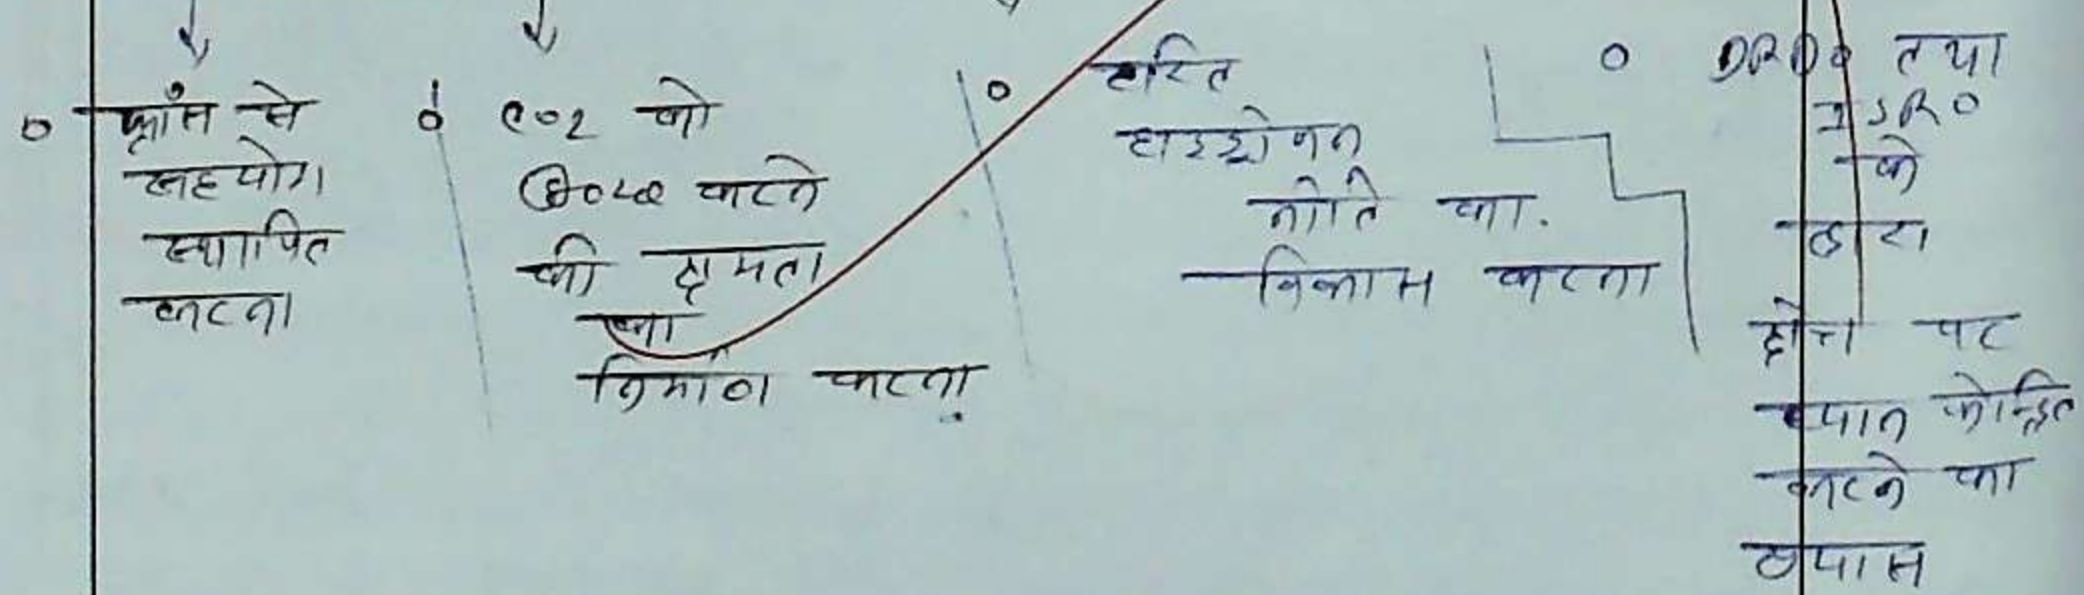 फ्रांस से
सहयोग
स्थापित
करना
CO2 को
करने
की क्षमता
का
निर्माण करना
हरित
हाइड्रोजन
नीति का
विकास करना
DRDO तथा
ISRO
के
द्वारा
क्षेत्र पर
ध्यान केन्द्रित
करने का
प्रयास